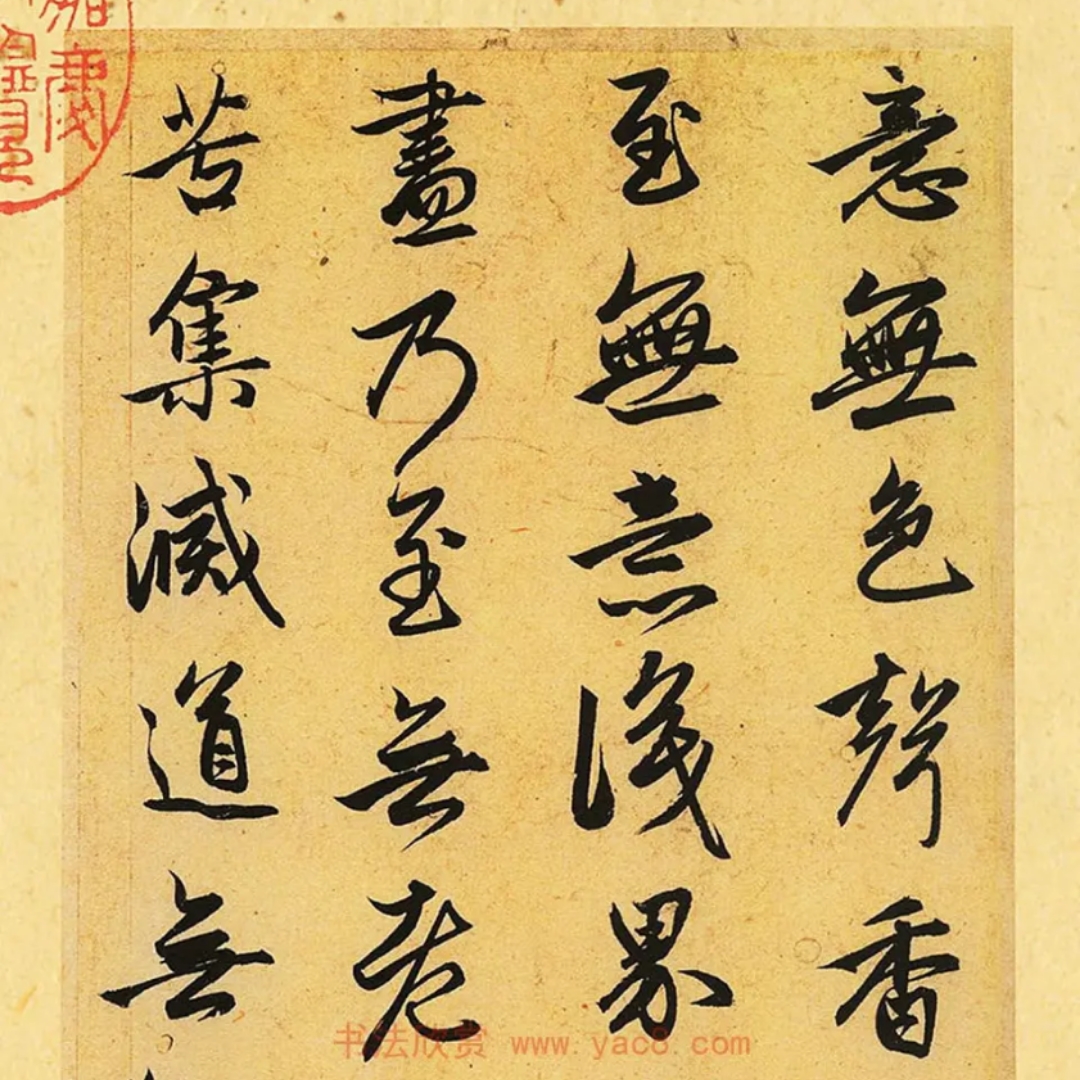 意無色聲香
至無意識界
盡乃至無老
苦集滅道無
书法欣赏 www.yac8.com